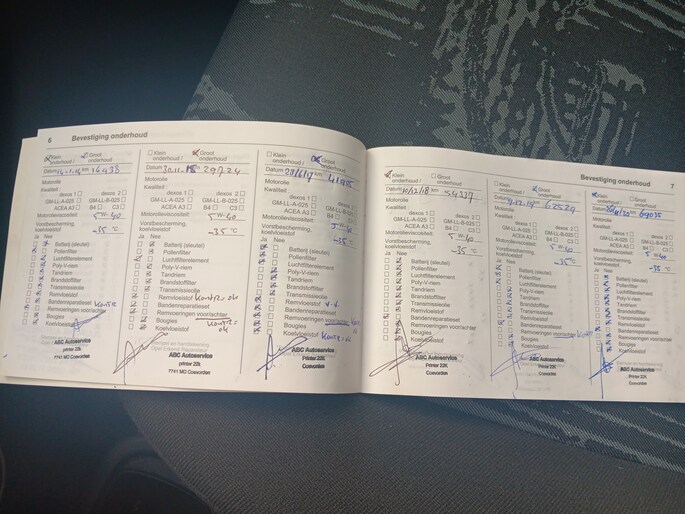 6 Bevestiging onderhoud
Klein onderhoud / Groot onderhoud
Datum 14-1-14 km 16438
Motorolie
Kwaliteit
dexos 1 dexos 2
GM-LL-A-025 GM-LL-B-025
ACEA A3 B4 C3
Motorolieviscositeit 5 W- 40
Vorstbescherming,
koelvloeistof -35 °C
Ja Nee
Batterij (sleutel)
Pollenfilter
Luchtfilterelement
Poly-V-riem
Tandriem
Brandstoffilter
Transmissieolie
Remvloeistof
Bandenreparatieset
Remvoeringen voor/achter
Bougies
Koelvloeistof
ABC Autoservice
printer 22K
7741 MD Coevorden
Klein onderhoud / Groot onderhoud
Datum km 29724
Motorolie
Kwaliteit
dexos 1 dexos 2
GM-LL-A-025 GM-LL-B-025
ACEA A3 B4 C3
Motorolieviscositeit 5 W- 40
Vorstbescherming,
koelvloeistof -35 °C
Ja Nee
Batterij (sleutel)
Pollenfilter
Luchtfilterelement
Poly-V-riem
Tandriem
Brandstoffilter
Transmissieolie
Remvloeistof
Bandenreparatieset
Remvoeringen voor/achter
Bougies
Koelvloeistof
ABC Autoservice
printer 22K
7741 MD Coevorden
Klein onderhoud / Groot onderhoud
Datum km 41905
Motorolie
Kwaliteit
dexos 1 dexos 2
GM-LL-A-025 GM-LL-B-025
ACEA A3 B4 C3
Motorolieviscositeit 5 W- 40
Vorstbescherming,
koelvloeistof -35 °C
Ja Nee
Batterij (sleutel)
Pollenfilter
Luchtfilterelement
Poly-V-riem
Tandriem
Brandstoffilter
Transmissieolie
Remvloeistof
Bandenreparatieset
Remvoeringen voor/achter
Bougies
Koelvloeistof
ABC Autoservice
Printer 22K
Coevorden
Bevestiging onderhoud 7
Klein onderhoud / Groot onderhoud
Datum 10/12/18 km 54237
Motorolie
Kwaliteit
dexos 1 dexos 2
GM-LL-A-025 GM-LL-B-025
ACEA A3 B4 C3
Motorolieviscositeit 5 W- 40
Vorstbescherming,
koelvloeistof -35 °C
Ja Nee
Batterij (sleutel)
Pollenfilter
Luchtfilterelement
Poly-V-riem
Tandriem
Brandstoffilter
Transmissieolie
Remvloeistof
Bandenreparatieset
Remvoeringen voor/achter
Bougies
Koelvloeistof
ABC Autoservice
Printer 22K
Coevorden
Klein onderhoud / Groot onderhoud
Datum km 62529
Motorolie
Kwaliteit
dexos 1 dexos 2
GM-LL-A-025 GM-LL-B-025
ACEA A3 B4 C3
Motorolieviscositeit 5 W- 40
Vorstbescherming,
koelvloeistof -35 °C
Ja Nee
Batterij (sleutel)
Pollenfilter
Luchtfilterelement
Poly-V-riem
Tandriem
Brandstoffilter
Transmissieolie
Remvloeistof
Bandenreparatieset
Remvoeringen voor/achter
Bougies
Koelvloeistof
ABC Autoservice
Printer 22K
Coevorden
Klein onderhoud / Groot onderhoud
Datum km
Motorolie
Kwaliteit
dexos 1 dexos 2
GM-LL-A-025 GM-LL-B-025
ACEA A3 B4 C3
Motorolieviscositeit 5 W- 40
Vorstbescherming,
koelvloeistof -35 °C
Ja Nee
Batterij (sleutel)
Pollenfilter
Luchtfilterelement
Poly-V-riem
Tandriem
Brandstoffilter
Transmissieolie
Remvloeistof
Bandenreparatieset
Remvoeringen voor/achter
Bougies
Koelvloeistof
ABC Autoservice
Printer 22K
Coevorden